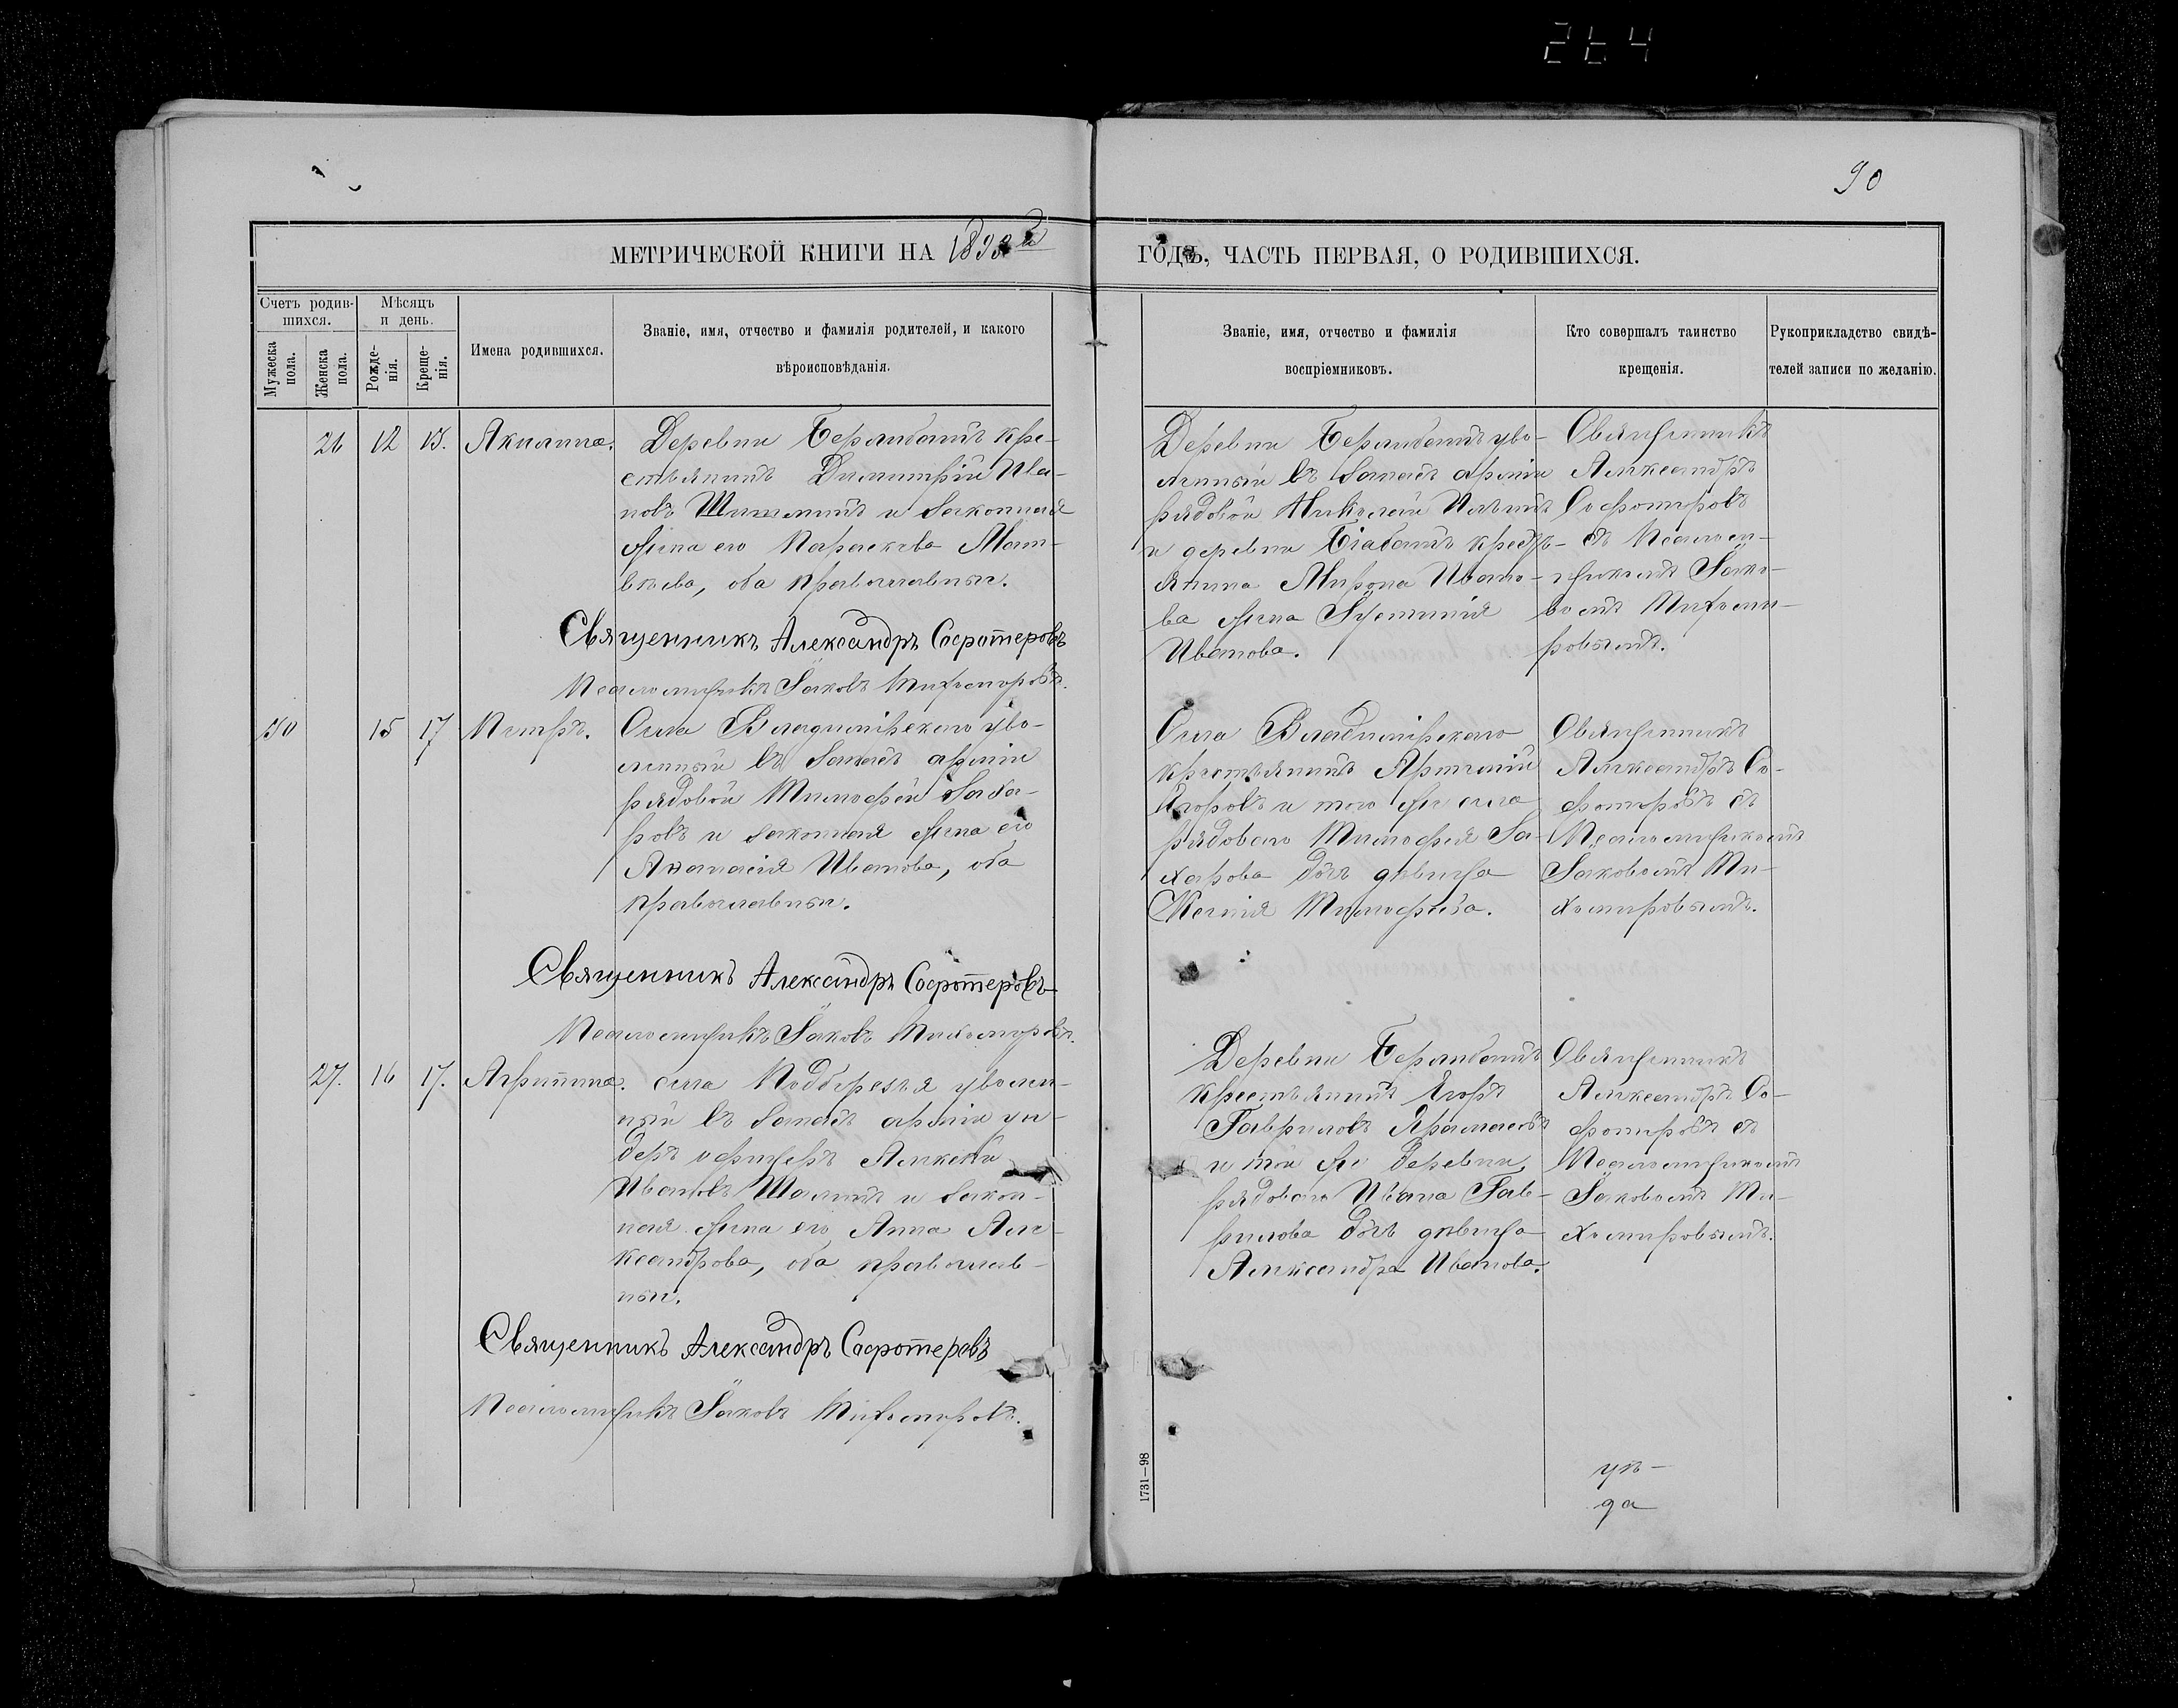 264
90
МЕТРИЧЕСКОЙ КНИГИ НА 1898й ГОДЪ, ЧАСТЬ ПЕРВАЯ, О РОДИВШИХСЯ.
Счетъ родив-
шихся.
Мужеска пола.
Женска пола.
Мѣсяцъ
и день.
Рожде-
нія.
Креще-
нія.
Имена родившихся.
Званіе, имя, отчество и фамилія родителей, и какого
вѣроисповѣданія.
Званіе, имя, отчество и фамилія
воспріемниковъ.
Кто совершалъ таинство
крещенія.
Рукоприкладство свидѣ-
телей записи по желанію.
26 12 15. Акилина.
Деревни кре-
стьянинъ Димитрій Ива-
новъ и законная
жена его Параскева Мат-
вѣева, оба православные.
Священникъ Александръ Софотеровъ
Псаломщикъ Іаковъ Тихомировъ.
Деревни уво-
ленный въ запасъ арміи
рядовой Николай Ильинъ
и деревни кресть-
янина Мирона Ивано-
ва жена
Иванова.
Священникъ
Александръ
Софотеровъ
съ Псалом-
щикомъ Іако-
вомъ Тихоми-
ровымъ.
30 15 17 Петръ.
Села Владимірскаго уво-
ленный въ запасъ арміи
рядовой Тимофей Заха-
ровъ и законная жена его
Аѳанасія Иванова, оба
православные.
Священникъ Александръ Софотеровъ
Псаломщикъ Іаковъ Тихомировъ.
Села Владимірскаго
крестьянинъ Артемій
Егоровъ и того же села
рядоваго Тимофея За-
харова дочь дѣвица
Ксенія Тимофеева.
Священникъ
Александръ Со-
фотеровъ съ
Псаломщикомъ
Іаковомъ Ти-
хомировымъ.
27. 16 17. Агрипина.
села Подберезья уволен-
ный въ запасъ арміи ун-
деръ офицеръ Алексѣй
Ивановъ Шалинъ и закон-
ная жена его Анна Але-
ксандрова, оба православ-
ные.
Священникъ Александръ Софотеровъ
Псаломщикъ Іаковъ Тихомировъ.
Деревни
крестьянинъ Егоръ
Гавриловъ
и той же деревни,
рядоваго Ивана Гав-
рилова дочь дѣвица
Александра Иванова.
Священникъ
Александръ Со-
фотеровъ съ
Псаломщикомъ
Іаковомъ Ти-
хомировымъ.
уѣ-
да
1731—98